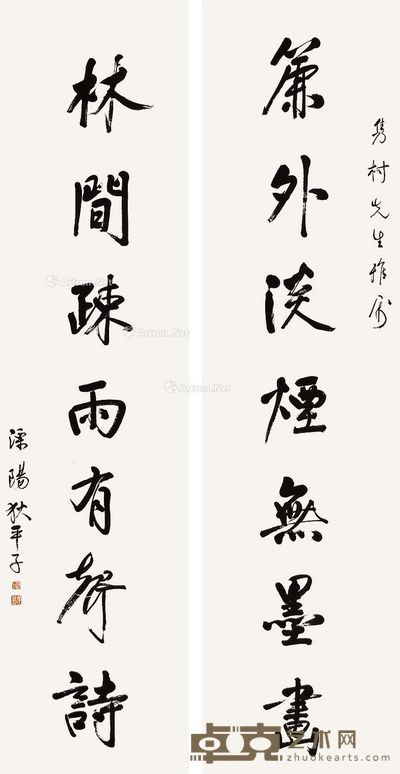 簾外淡煙無墨畫
雋村先生雅屬
林間疎雨有聲詩
溧陽狄平子
Artron.Net
卓克艺术网
www.zhuokearts.com